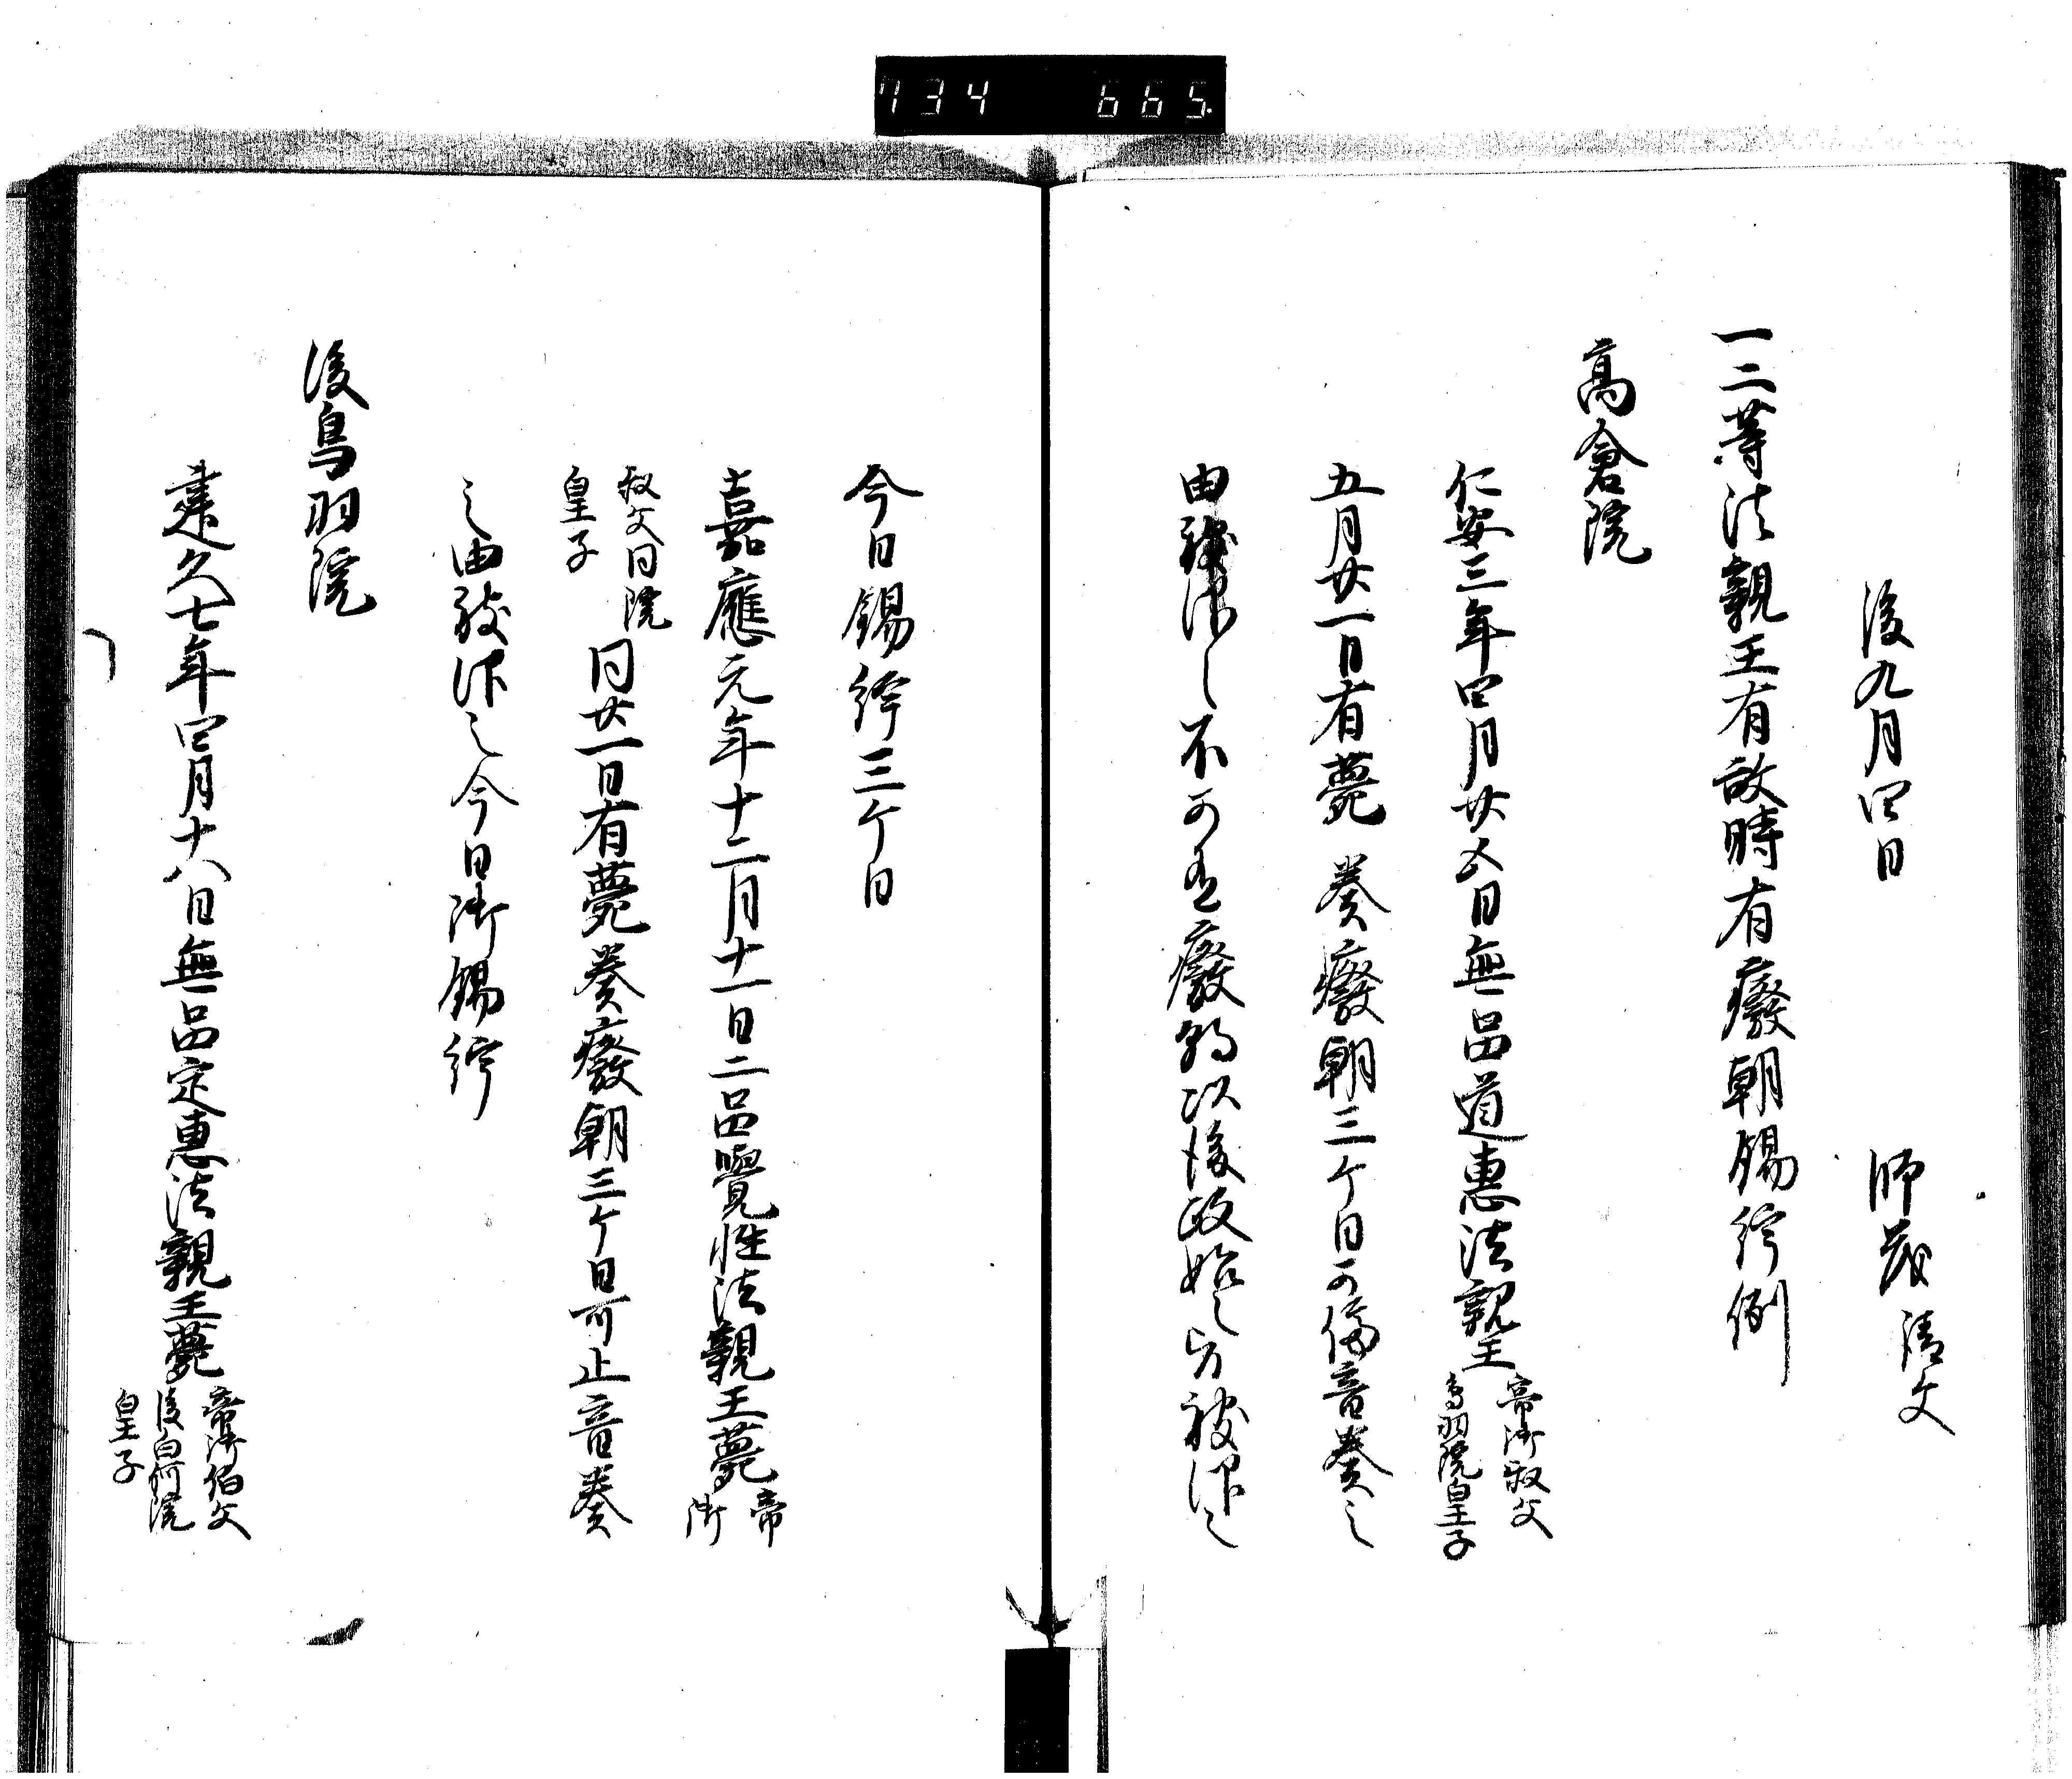 734 665
後九月四日 師茂請文
一二等法親王有故時有癈朝錫紵例
高倉院
仁安三年四月廿五日無品道惠法親王 帝御叔父 鳥羽院皇子
五月廿一日有薨奏癈朝三ケ日可停音奏之
由被仰之不可有癈朝以後政始之由被仰之
今日錫紵三ケ日
嘉應元年十二月十一日二品覺性法親王薨 帝御
叔父同院皇子 同廿一日有薨奏癈朝三ケ日可止音奏
之由被仰之今日御錫紵
後鳥羽院
建久七年四月十八日無品定惠法親王薨 帝御伯父 後白河院 皇子